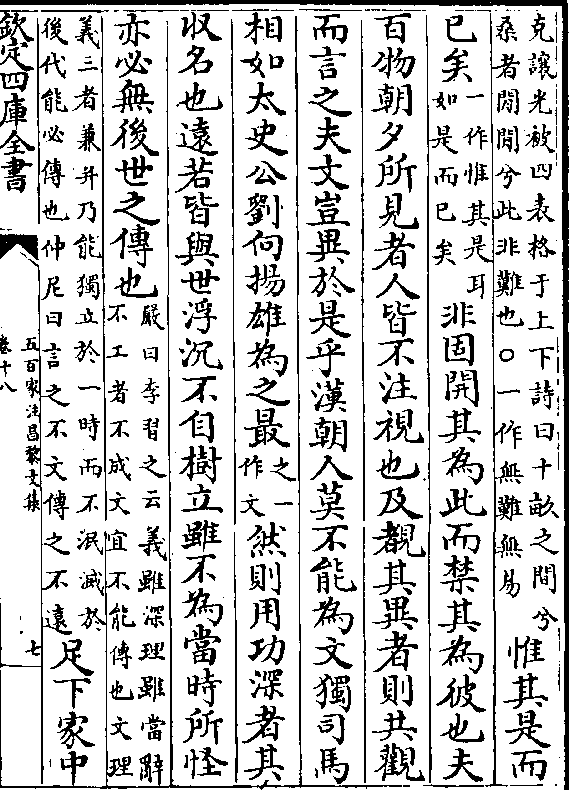 克讓光被四表格于上下詩曰十畝之間兮
桑者閒閒兮此非難也〇一作無難無易
惟其是而
已矣
一作惟其是耳
如是而已矣
非固開其為此而禁其為彼也夫
百物朝夕所見者人皆不注視也及覩其異者則共觀
而言之夫文豈異於是乎漢朝人莫不能為文獨司馬
相如太史公劉向揚雄為之最
之一
作文
然則用功深者其
收名也遠若皆與世浮沉不自樹立雖不為當時所怪
亦必無後世之傳也
嚴曰李習之云義雖深理雖當辭
不工者不成文宜不能傳也文理
義三者兼并乃能獨立於一時而不泯滅於
後代能必傳也仲尼曰言之不文傳之不遠
足下家中
欽定四庫全書
五百家注昌黎文集
卷十八
七